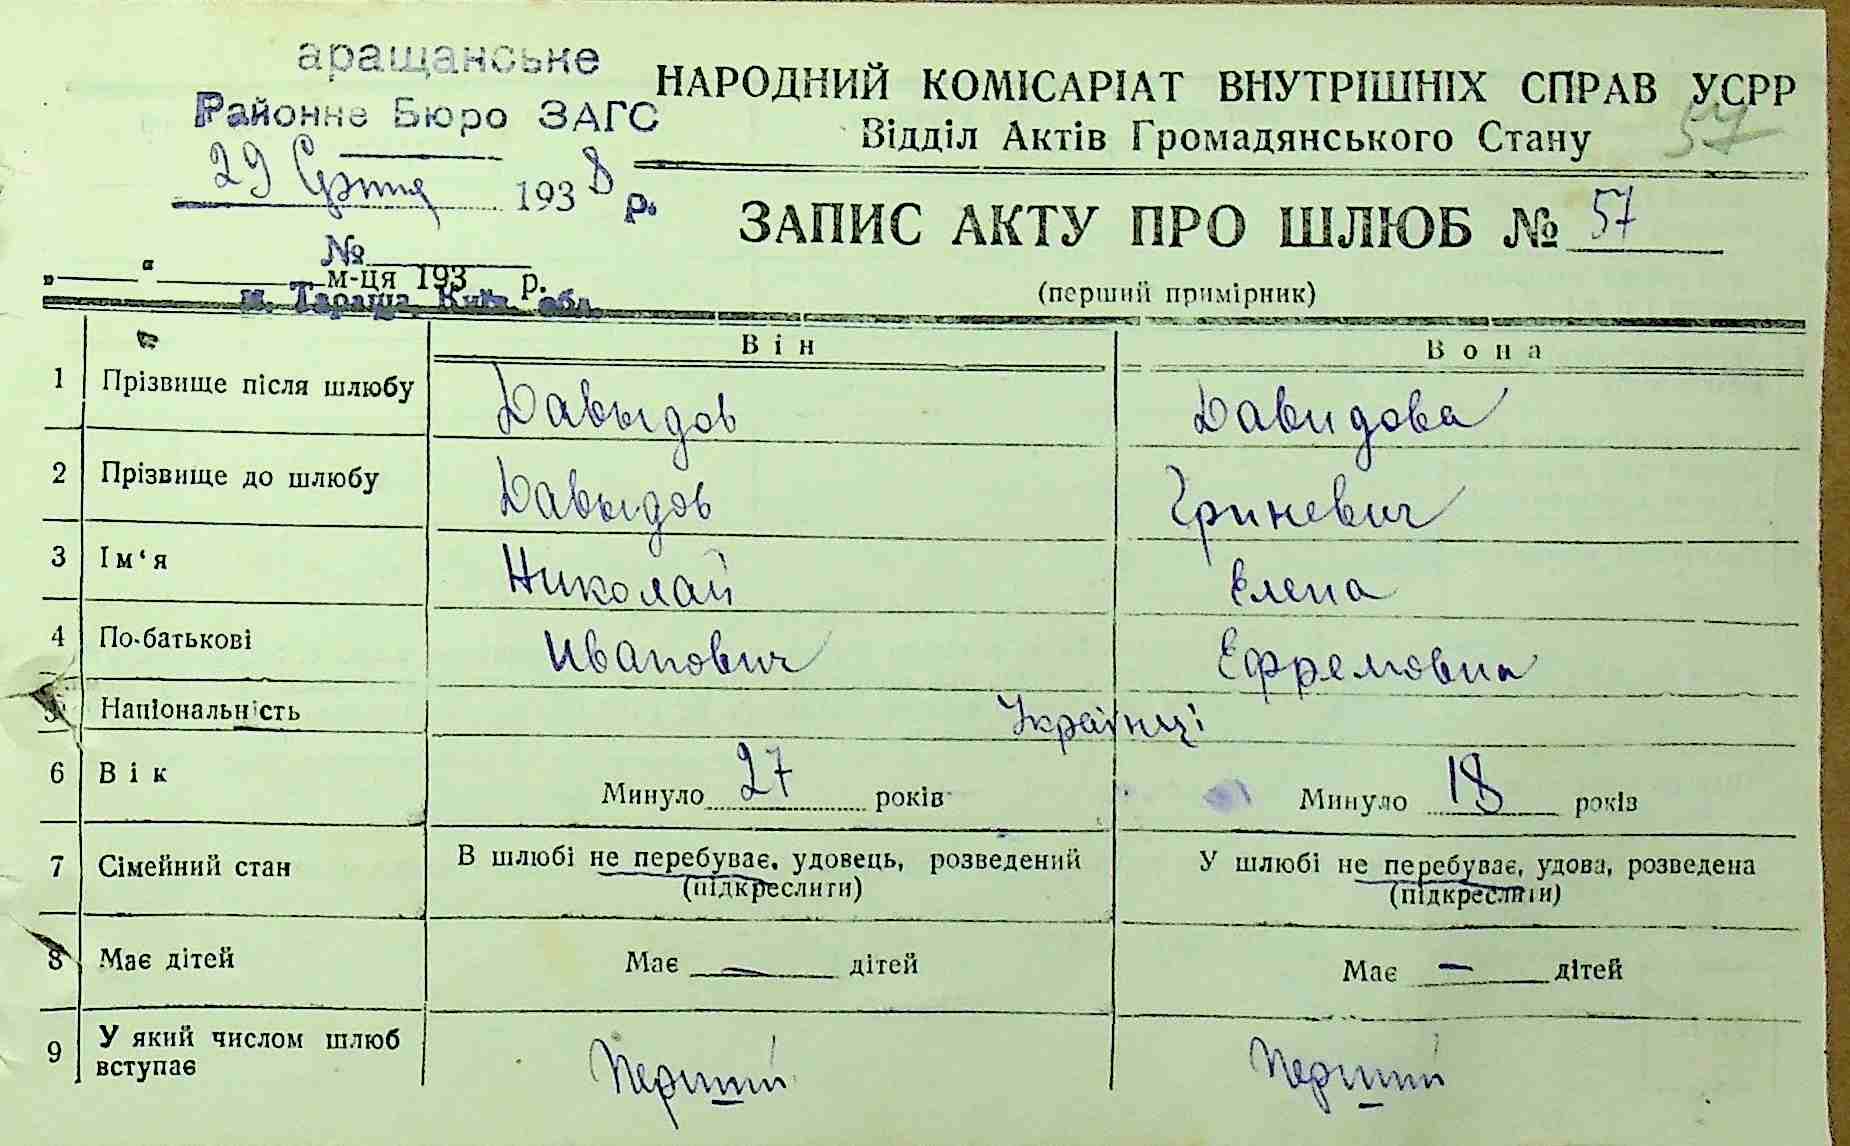 аращанське
Районне Бюро ЗАГС
29 Серпня 1938 р.
№
„ “ м-ця 193 р.
м. Тараща, Київ. обл.
НАРОДНИЙ КОМІСАРІАТ ВНУТРІШНІХ СПРАВ УСРР
Відділ Актів Громадянського Стану
57
ЗАПИС АКТУ ПРО ШЛЮБ № 57
(перший примірник)
Він Вона
1 Прізвище після шлюбу Давыдов Давидова
2 Прізвище до шлюбу Давыдов Гриневич
3 Ім‘я Николай Елена
4 По-батькові Иванович Ефремовна
5 Національність Українці
6 Вік Минуло 27 років Минуло 18 років
7 Сімейний стан В шлюбі не перебуває, удовець, розведений У шлюбі не перебуває, удова, розведена
(підкреслити) (підкреслити)
8 Має дітей Має — дітей Має — дітей
9 У який числом шлюб Перший Перший
вступає